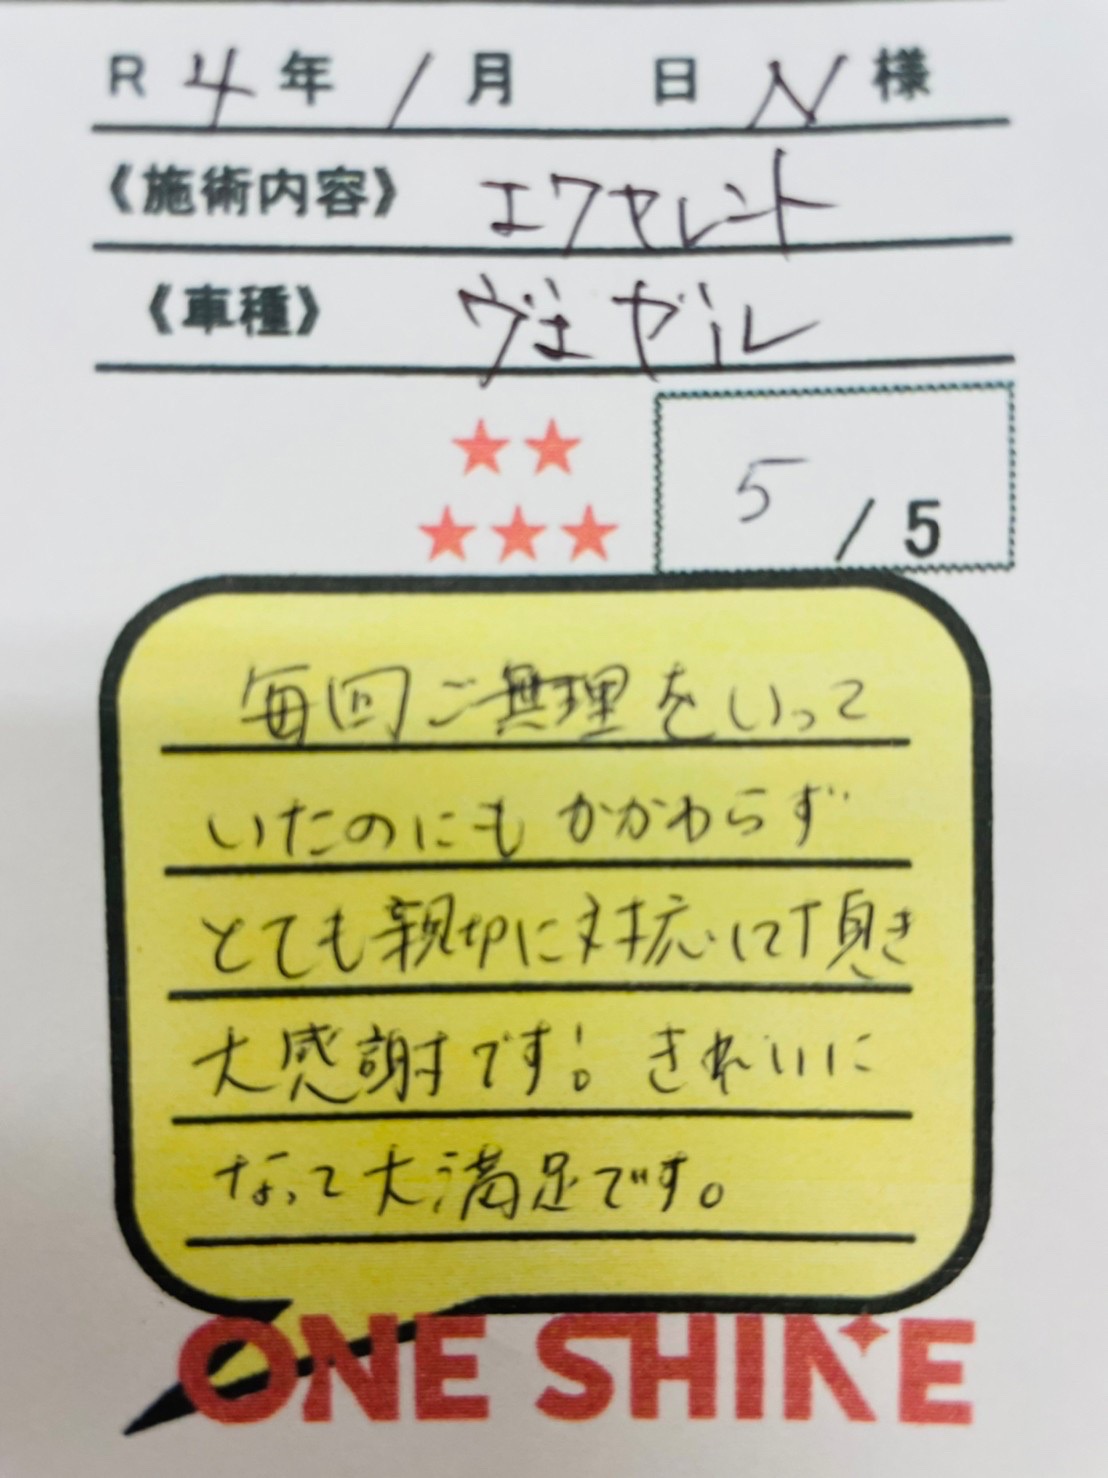 R 4年 1月 日 N 様
《施術内容》 エクセレント
《車種》 ヴェゼル
5 / 5
毎回ご無理をいって
いたのにもかかわらず
とても親切に対応して頂き
大感謝です! きれいに
なって大満足です。
ONE SHINE